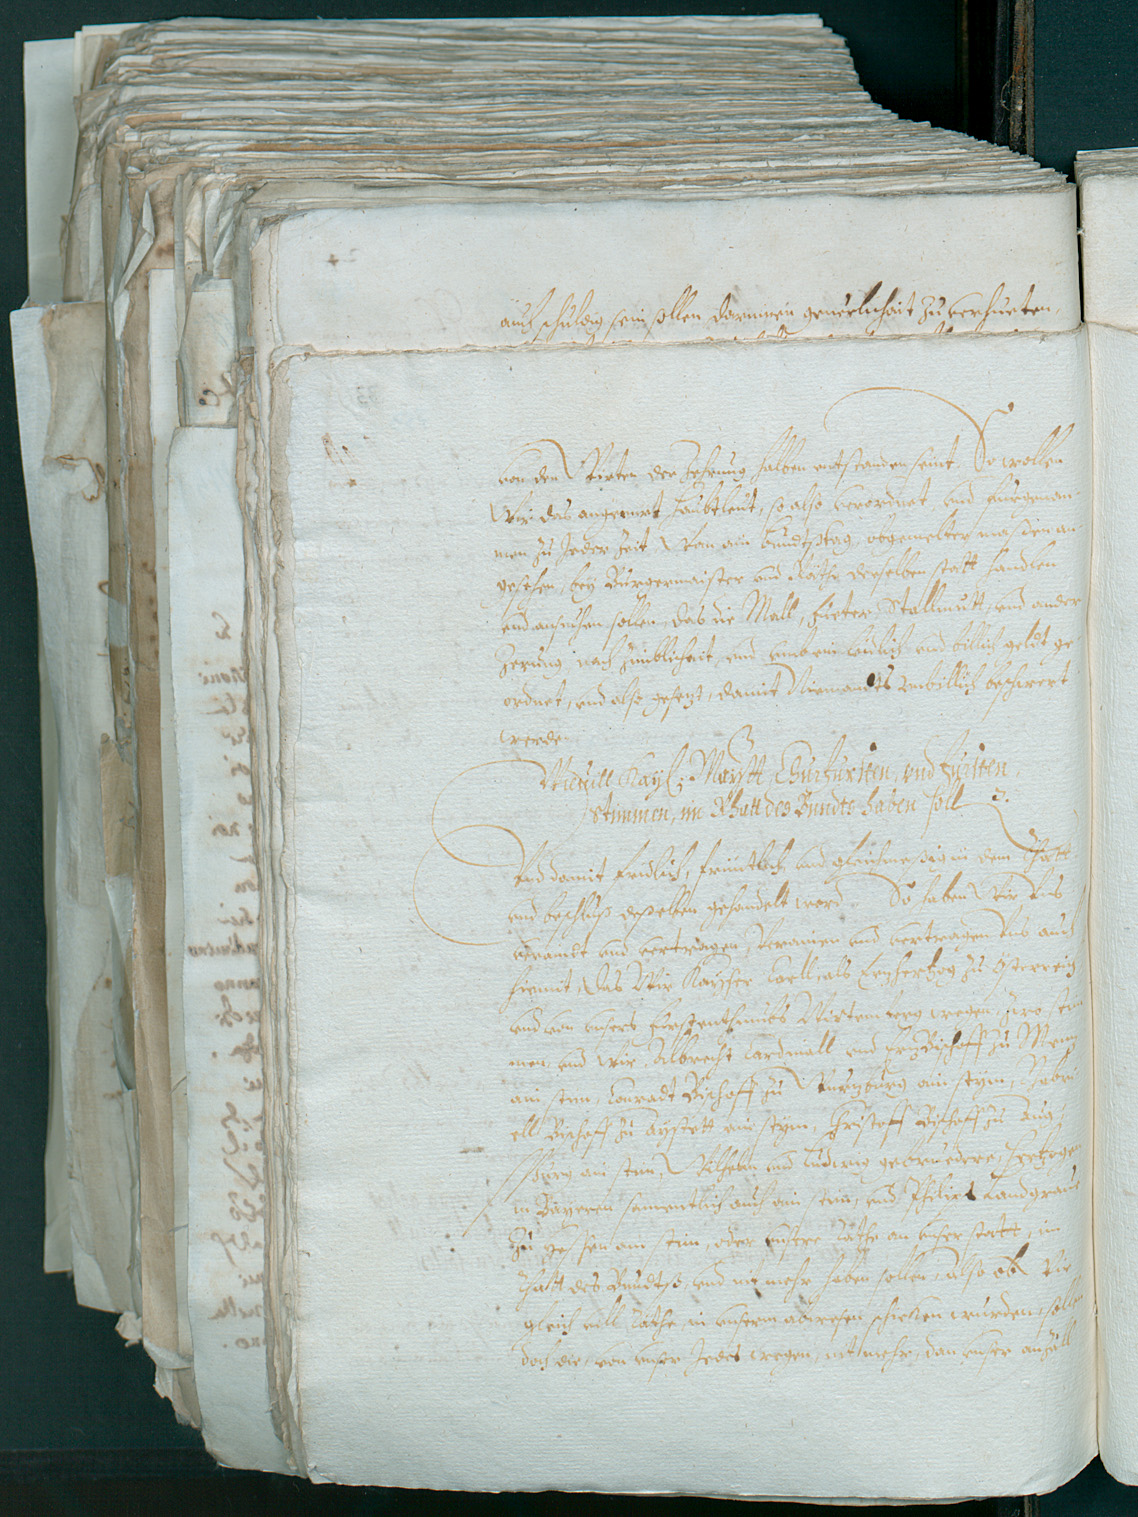 auch schuldig sein sollen darinnen geuerlichait zu verhueten,
von den Wirten der Zehrung halben entstanden seint. So wollen
Wir das angeregt Haubtleut, so also verordnet und fürgenom-
men zu Jeder Zeit, Wan ain Bundtstag obgemelter massen an-
gesehen, bey Burgermaister und Räthe derselben statt handlen
und ansuchen sollen, das die Mall, Fueter, Stallmuet, und ander
Zerung nach zimblichait und umb ein leidlich und billich geldt ge-
ordnet, und also gesezt, damit Niemandts unbillich beschwert
werde.
Wieuill Kay: Maystt, Churfursten, und Fürsten
Stimmen, im Rhatt des Bundts haben soll.
Und damit fridlich, freuntlich und gleichmessig in dem Rhatt
und beschluß desselben gehandelt werd. So haben Wir Uns
veraint und vertragen, Verainen und vertragen Uns auch
hiemit, Das Wir Kayser Carll als Erzhertzog zu Österreich
und von unsers Fürstenthumbs Wirtemberg wegen, zwo stim-
men, und Wir Albrecht Cardinall und ErzBischoff zu Mentz
ain stim, Conradt Bischoff zu Wurtzburg ain stym, Gabri-
ell Bischoff zu Aystett ain stym, Christoff Bischoff zu Aug-
spurg ain stim, Wilhelm und Ludwig gebruedere, Hertzogen
in Bayern samentlich auch ain stim, und Philips Landgraue
zu Hessen ain stim, oder unsere Räthe an unser statt, im
Rhatt des Bundts, und nit mehr haben sollen, also ob Wir
gleich vill Räthe in unserm abwesen schicken wurden, sollen
doch die, von unser Jedes wegen, nit mehr, dan unser anzall